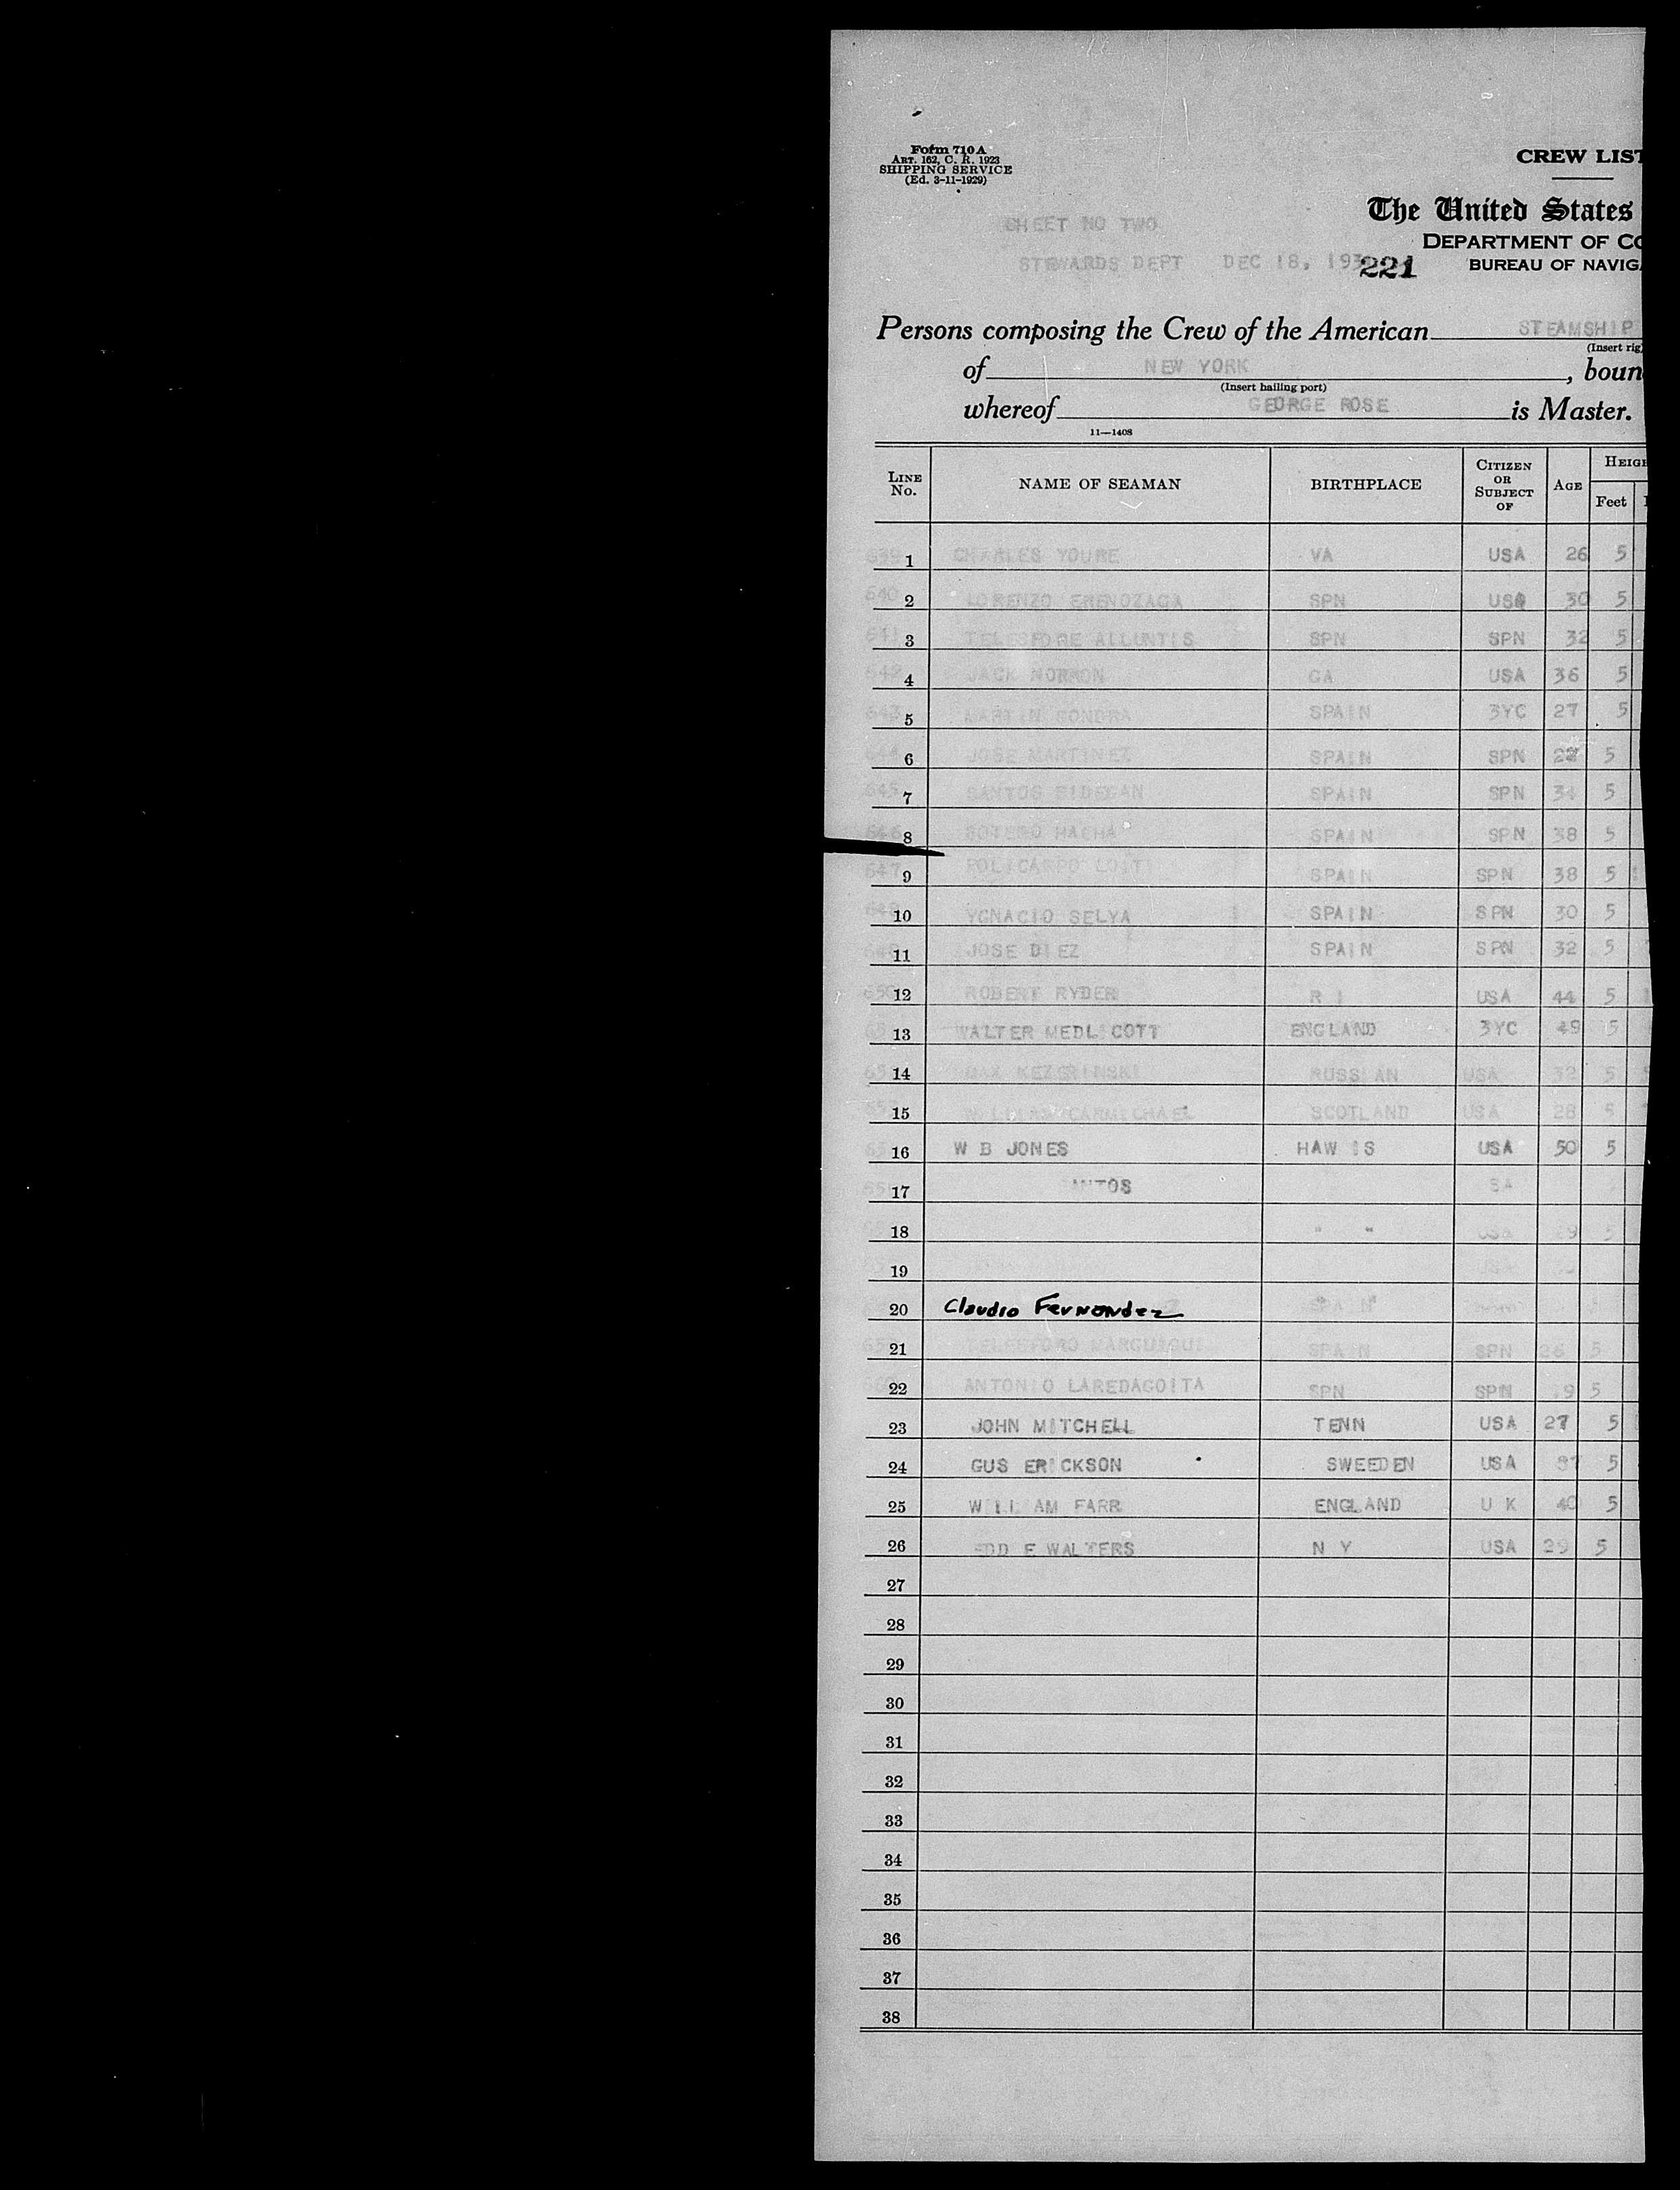 Form 710A
ART. 162, C. R. 1923
SHIPPING SERVICE
(Ed. 3-11-1929)
CREW LIST
The United States
SHEET NO TWO
DEPARTMENT OF CO
STEWARDS DEPT DEC 18, 193 221 BUREAU OF NAVIGA
Persons composing the Crew of the American STEAMSHIP
(Insert rig
of NEW YORK, boun
(Insert hailing port)
whereof GEORGE ROSE is Master.
11—1408
LINE No. NAME OF SEAMAN BIRTHPLACE CITIZEN OR SUBJECT OF AGE HEIGH
Feet
639 1 CHARLES YOURE VA USA 26 5
640 2 LORENZO ERENOZAGA SPN USA 30 5
641 3 TELESFORE ALLUNTIS SPN SPN 32 5
642 4 JACK NORMON GA USA 36 5
643 5 MARTIN GONDRA SPAIN 3YC 27 5
644 6 JOSE MARTINEZ SPAIN SPN 5
645 7 SANTOS BIDEGAN SPAIN SPN 34 5
646 8 SOTERO HACHA SPAIN SPN 38 5
647 9 POLICARPO SPAIN SPN 38 5
648 10 YGNACIO SELYA SPAIN SPN 30 5
649 11 JOSE DIEZ SPAIN SPN 32 5
650 12 ROBERT RYDER R I USA 44 5
13 WALTER MEDLICOTT ENGLAND 3YC 49 5
14 MAX KEZERINSKI RUSSIAN USA 32 5
15 WILLIAM CARMICHAEL SCOTLAND USA 28 5
16 W B JONES HAW IS USA 50 5
17
18 " "
19
20 Claudio Fernandez SPAIN
21 TELESFORO SPAIN SPN 26 5
22 ANTONIO LAREDAGOITA SPN SPN 5
23 JOHN MITCHELL TENN USA 27 5
24 GUS ERICKSON SWEEDEN USA 5
25 WILLIAM FARR ENGLAND U K 40 5
26 EDD F WALTERS N Y USA 29 5
27
28
29
30
31
32
33
34
35
36
37
38